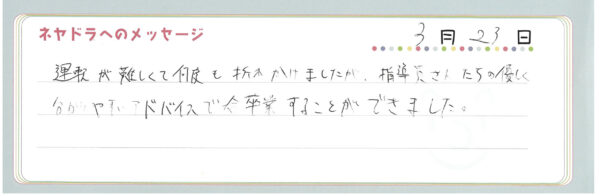 ネヤドラへのメッセージ
3月23日
運転が難しくて何度も折れかけましたが、指導員さんたちの優しく
分かりやすいアドバイスで卒業することができました。